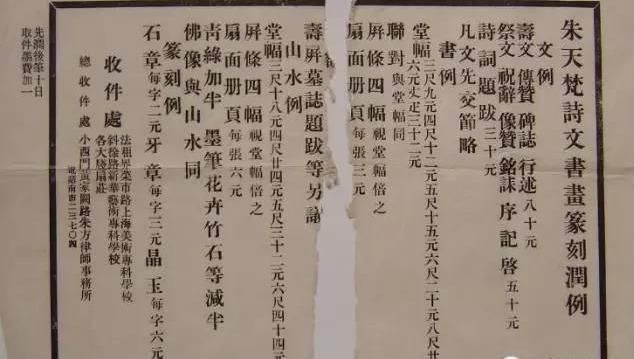 朱天梵詩文書畫篆刻潤例
文例
壽文 傳贊 碑誌 行述 八十元
祭文 祝辭 像贊 銘誄 序 記 啓 五十元
詩詞題跋三十元
凡文先交節略
書例
堂幅三尺九元四尺十二元五尺十五元六尺二十元八尺廿
六元丈疋三十二元
聯對與堂幅同
屏條四幅視堂幅倍之
扇面册頁每張三元
壽屏墓誌題跋等另議
山水例
堂幅三尺十八元四尺廿四元五尺三十二元六尺四十四元
屏條四幅視堂幅倍之
扇面册頁每張六元
青綠加半 墨筆花卉竹石等減半
佛像與山水同
篆刻例
石章每字二元牙章每字三元晶玉每字六元
收件處
法租界菜市路上海美術專科學校
斜徐路新華藝術專科學校
各大牋扇莊
總收件處 小西門黃家闕路朱方律師事務所
電話南市二三七〇四
先潤後筆十日
取件墨費加一